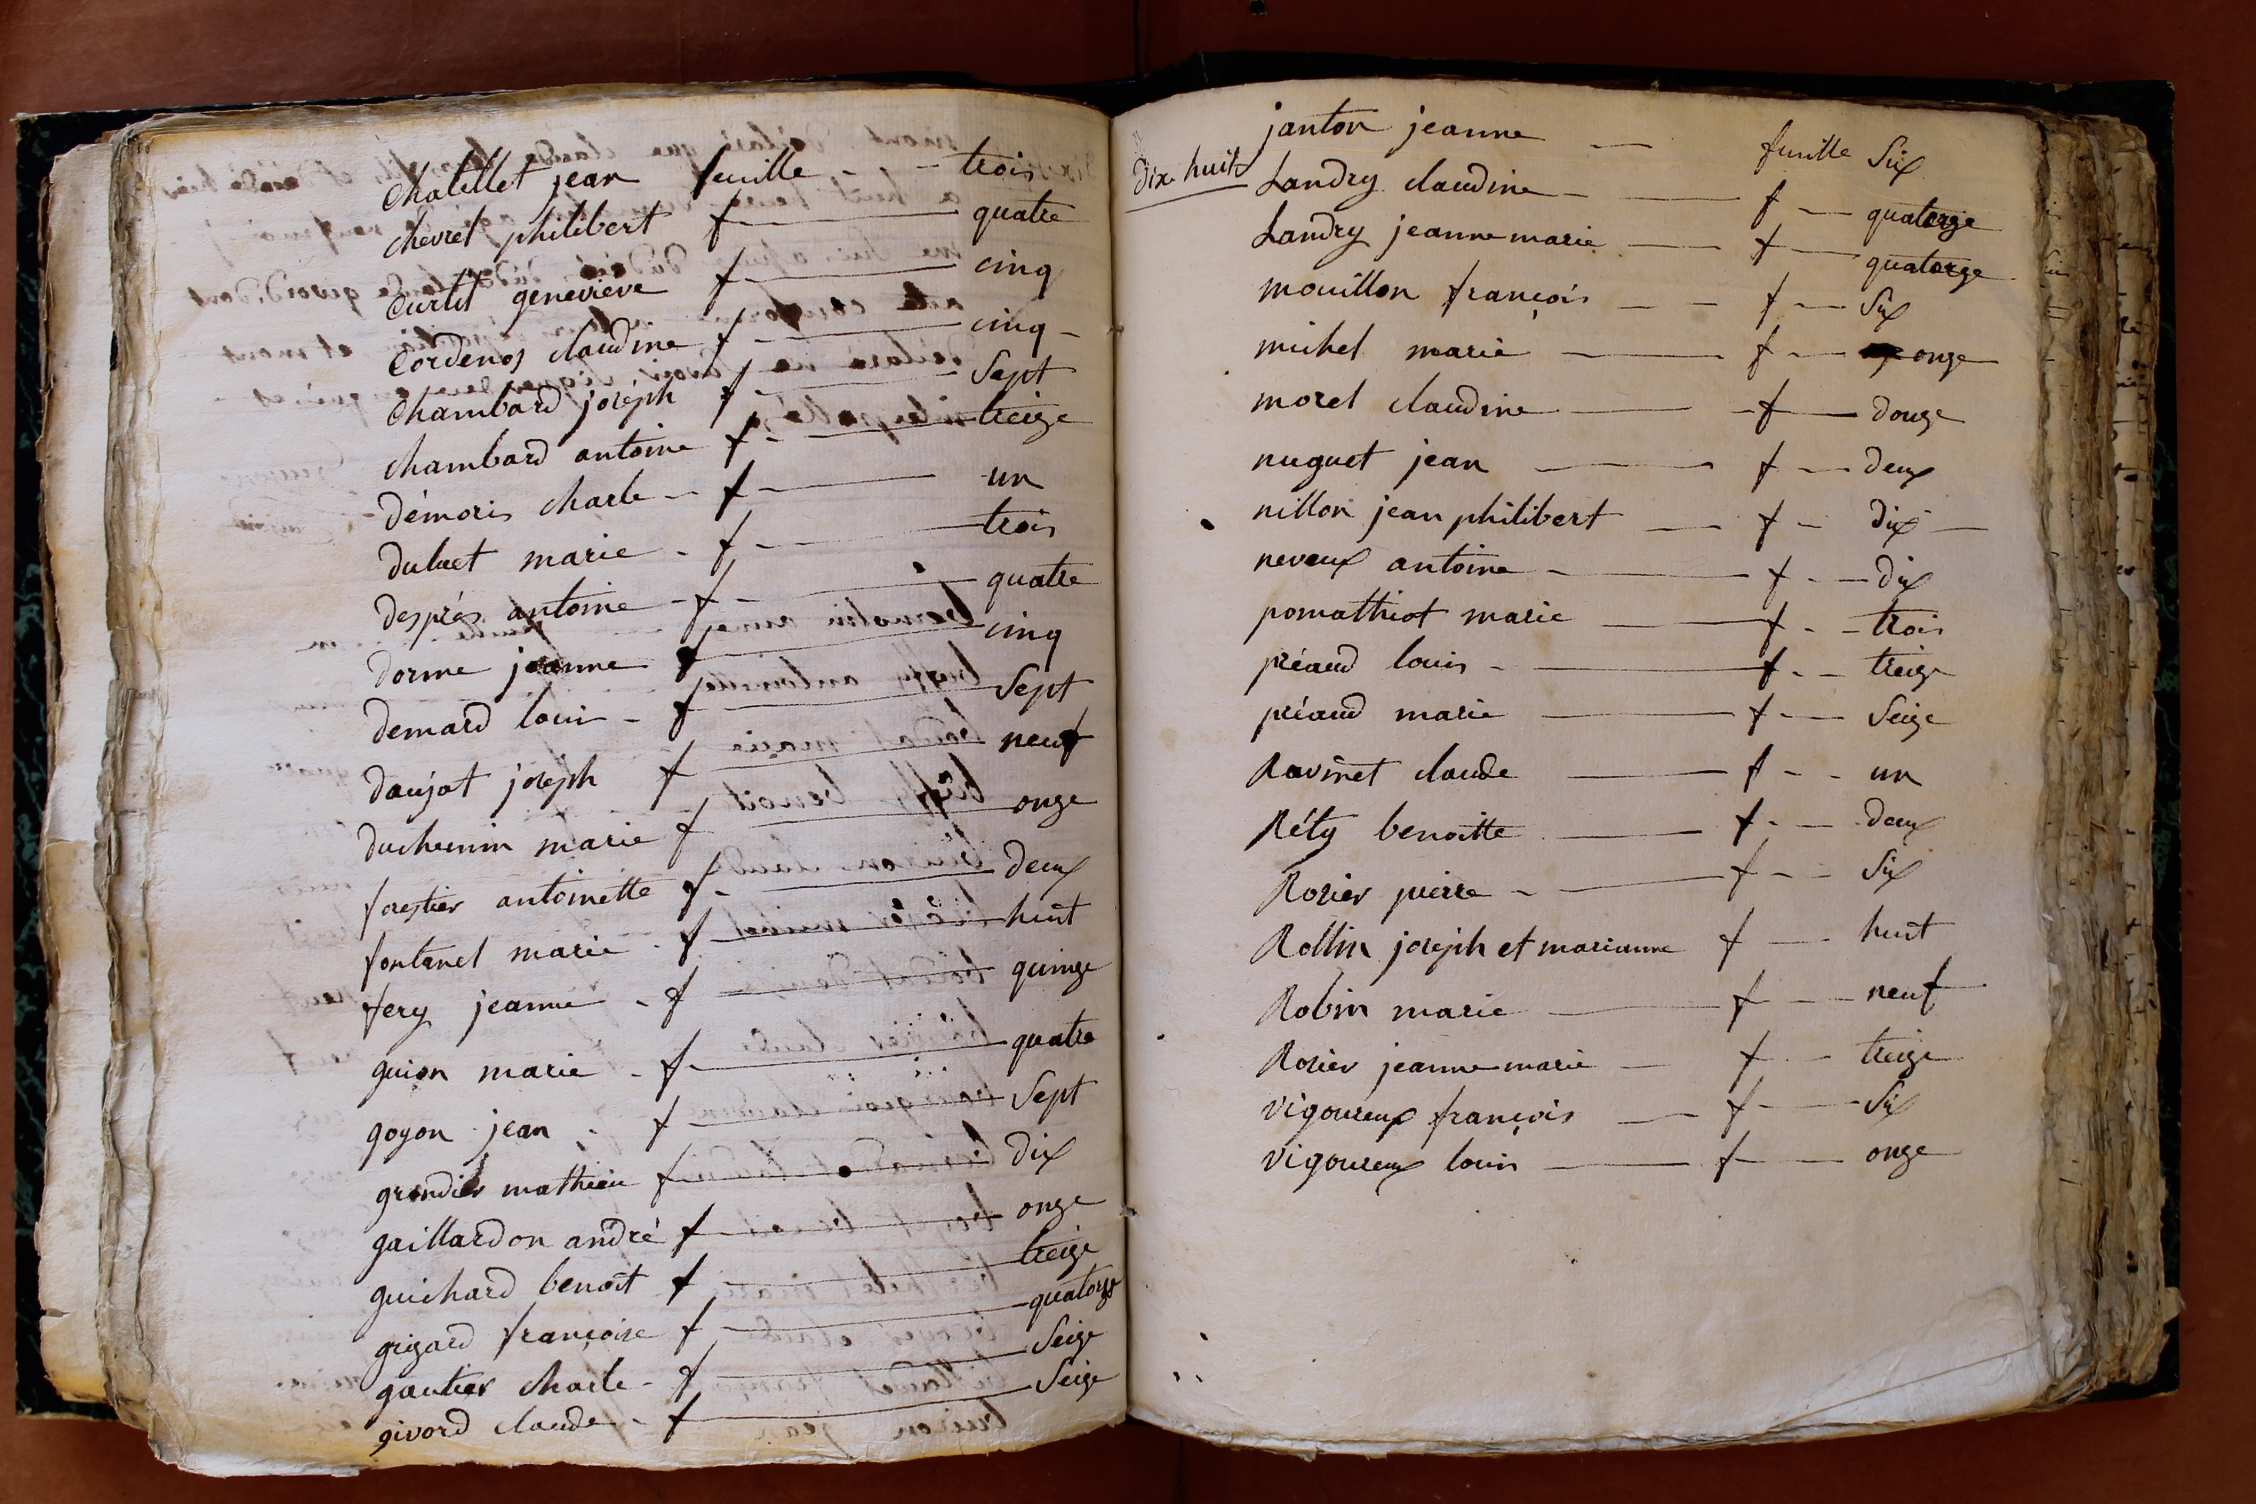 chatillet jean feuille - - trois
chevret philibert f - quatre
curtit genevieve f - cinq
cordenos claudine f - cinq -
chambard joséph f - Sept
chambard antoine f - treize
démoris charle - f - un
dubuet marie - f - trois
després antoine - f - quatre
dorme jeanne f - cinq
demard louis - f - Sept
daujat joseph f - neuf
duchesnin marie f - onze
forestier antoinette f - deux
fontanel marie - f - huit
fery jeanne - f - quinze
guion marie - f - quatre
goyon jean - f - Sept
grandier mathieu f - dix
gaillardon andré f - onze
guichard benoit f - treize
grizard françoise f - quatorze
gautier charle - f - Seize
givord claude - f - Seize
janton jeanne - feuille Six
dix huit
Landry claudine - f - quatorze
Landry jeanne marie - f - quatorze
mouillon françois - - f - Six
michel marie - f - onze
morel claudine - f - douze
nuguet jean - f - deux
nillon jean philibert - f - dix -
neveux antoine - f - dix
pomathiot marie - f - trois
préaud louis - f - treize
préaud marie - f - Seize
Ravinet claude - f - un
Réty benoitte - f - deux
Rosier pierre - f - Six
Rollin joséph et marianne f - huit
Robin marie - f - neuf
Rosier jeanne marie - f - treize
vigoureux françois - f - Six
vigoureux louis - f - onze